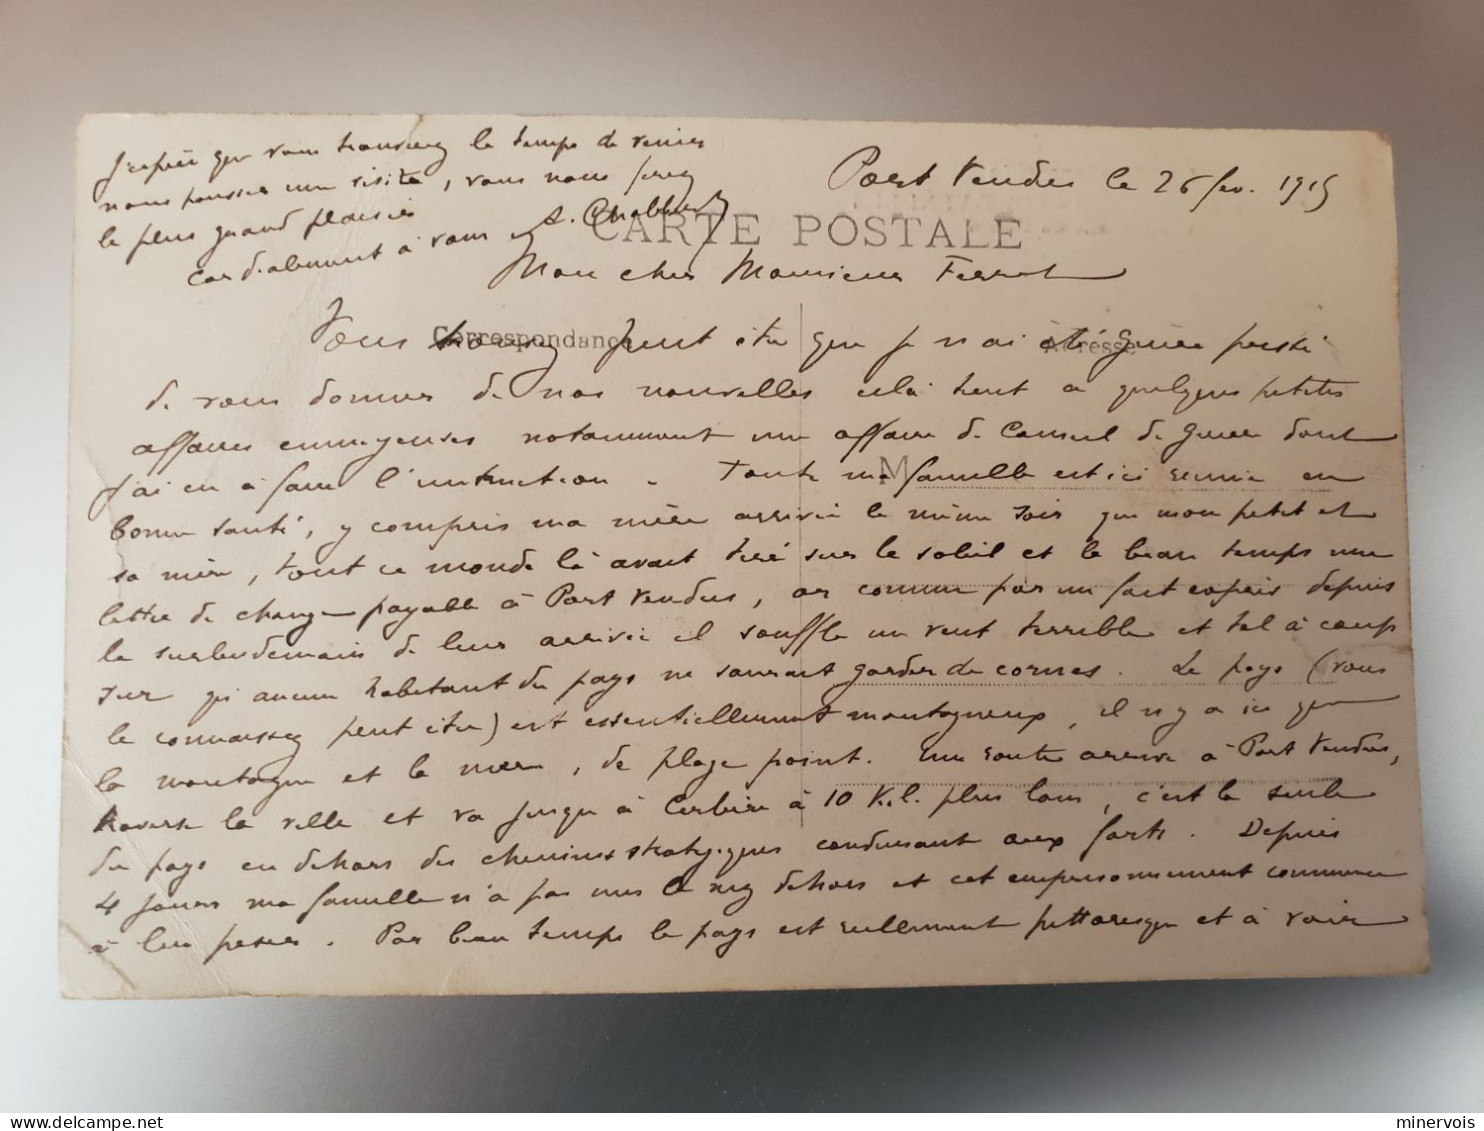 Port Vendres le 26 fev. 1915
CARTE POSTALE
Mon cher Monsieur Ferrot
Correspondance
Adresse
Vous trouvez peut être que je n'ai été guère pressé
de vous donner de nos nouvelles cela tient a quelques petites
affaires ennuyeuses notamment une affaire de Conseil de Guerre dont
j'ai eu à faire l'instruction. Toute ma famille est ici réunie en
M
bonne santé, y compris ma mère arrivée le même soir que mon petit et
sa mère, tout ce monde là avait tiré sur le soleil et le beau temps une
lettre de change payable à Port Vendres, or comme par un fait exprès depuis
le surlendemain de leur arrivée il souffle un vent terrible et tel à coup
sur qu'aucun habitant du pays ne saurait garder de cornes. Le pays (vous
le connaissez peut être) est essentiellement montagneux, il n'y a ici que
la montagne et la mer, de plage point. Une route arrive à Port Vendres,
traverse la ville et va jusqu'à Cerbère à 10 K.l. plus loin, c'est la seule
du pays en dehors des chemins stratégiques conduisant aux forts. Depuis
4 jours ma famille n'a pas mis le nez dehors et cet emprisonnement commence
à leur peser. Par beau temps le pays est réellement pittoresque et à voir
J'espère que vous trouverez le temps de venir
nous pousser une visite, vous nous ferez
le plus grand plaisir
Cordialement à vous
minervois